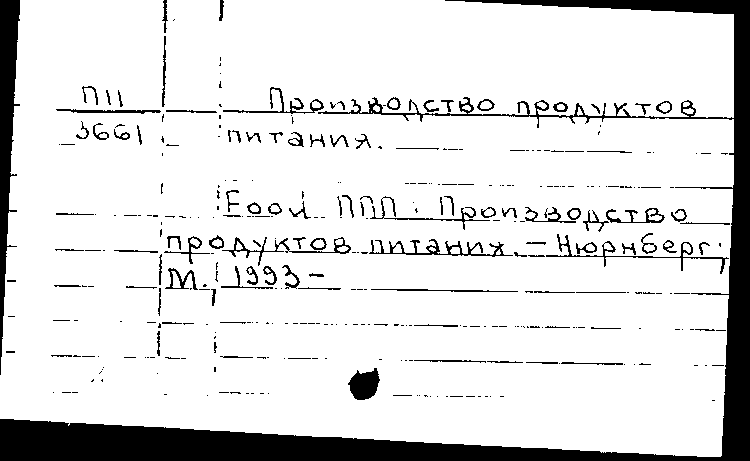 П11
3661
Производство продуктов
питания.
Food ППП : Производство
продуктов питания. – Нюрнберг;
М., 1993 –